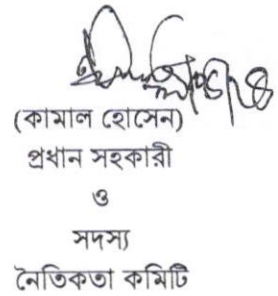 (কামাল হোসেন)
প্রধান সহকারী
ও
সদস্য
নৈতিকতা কমিটি